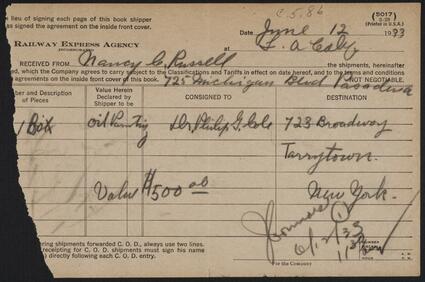 C.5.86
n lieu of signing each page of this book shipper
as signed the agreement on the inside front cover.
(5017)
5-29
(Printed in U.S.A.)
Date June 12 1933
RAILWAY EXPRESS AGENCY
INCORPORATED
at L.A. Calif
RECEIVED FROM Nancy C. Russell
the shipments, hereinafter
, which the Company agrees to carry subject to the Classifications and Tariffs in effect on date hereof, and to the terms and
agreement on the inside front cover. NOT NEGOTIABLE.
725 Michigan Blvd Pasadena
ber and Description
of Pieces
Value Herein
Declared by
Shipper to be
CONSIGNED TO
DESTINATION
1 Box Oil Painting Dr. Philip G. Cole 723 Broadway
Tarrytown.
Value $500.00 New York.
6/12/33
ng shipments forwarded C. O. D., always use two lines.
receipting for C. O. D. shipments must sign his name
) directly following each C. O. D. entry.
For the Company
A. M.
P. M.